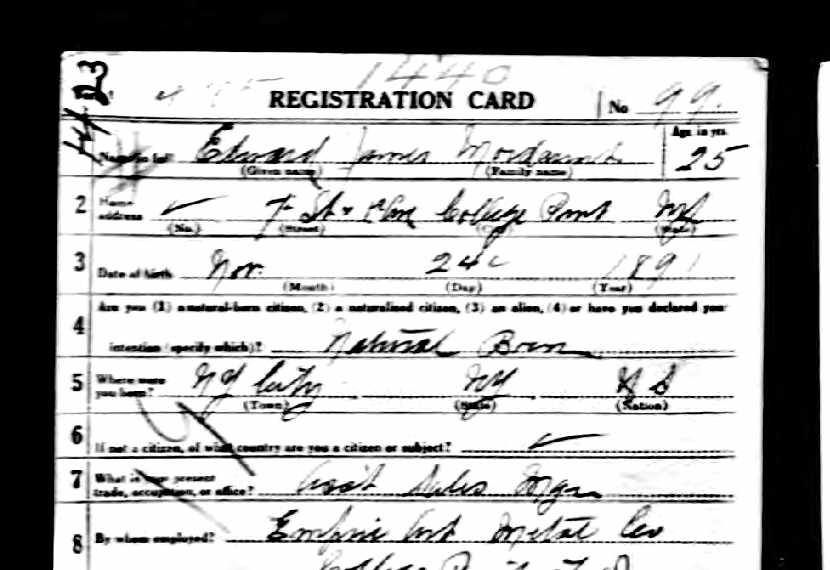 1440
REGISTRATION CARD No 99
Age, in yrs.
Edward James Mordaunt 25
(Given name) (Family name)
2 Home address 7th St & Ave College Point NY
(No.) (Street) (City) (State)
3 Date of birth Nov. 24 1891
(Month) (Day) (Year)
Are you (1) a natural-born citizen, (2) a naturalized citizen, (3) an alien, (4) or have you declared your
4 intention (specify which)? Natural Born
5 Where were you born? NY City NY US
(Town) (State) (Nation)
6 If not a citizen, of what country are you a citizen or subject?
7 What is your present trade, occupation, or office? Ass't Sales Mgr
8 By whom employed? Empire Art Metal Co
College Point